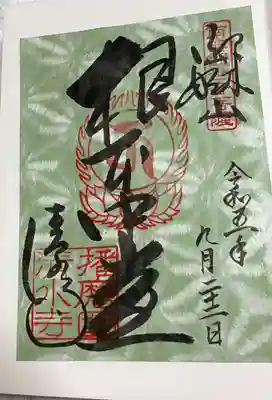 御嶽山
根本中堂
清水寺
令和五年
九月二十三日
播磨國
清水寺